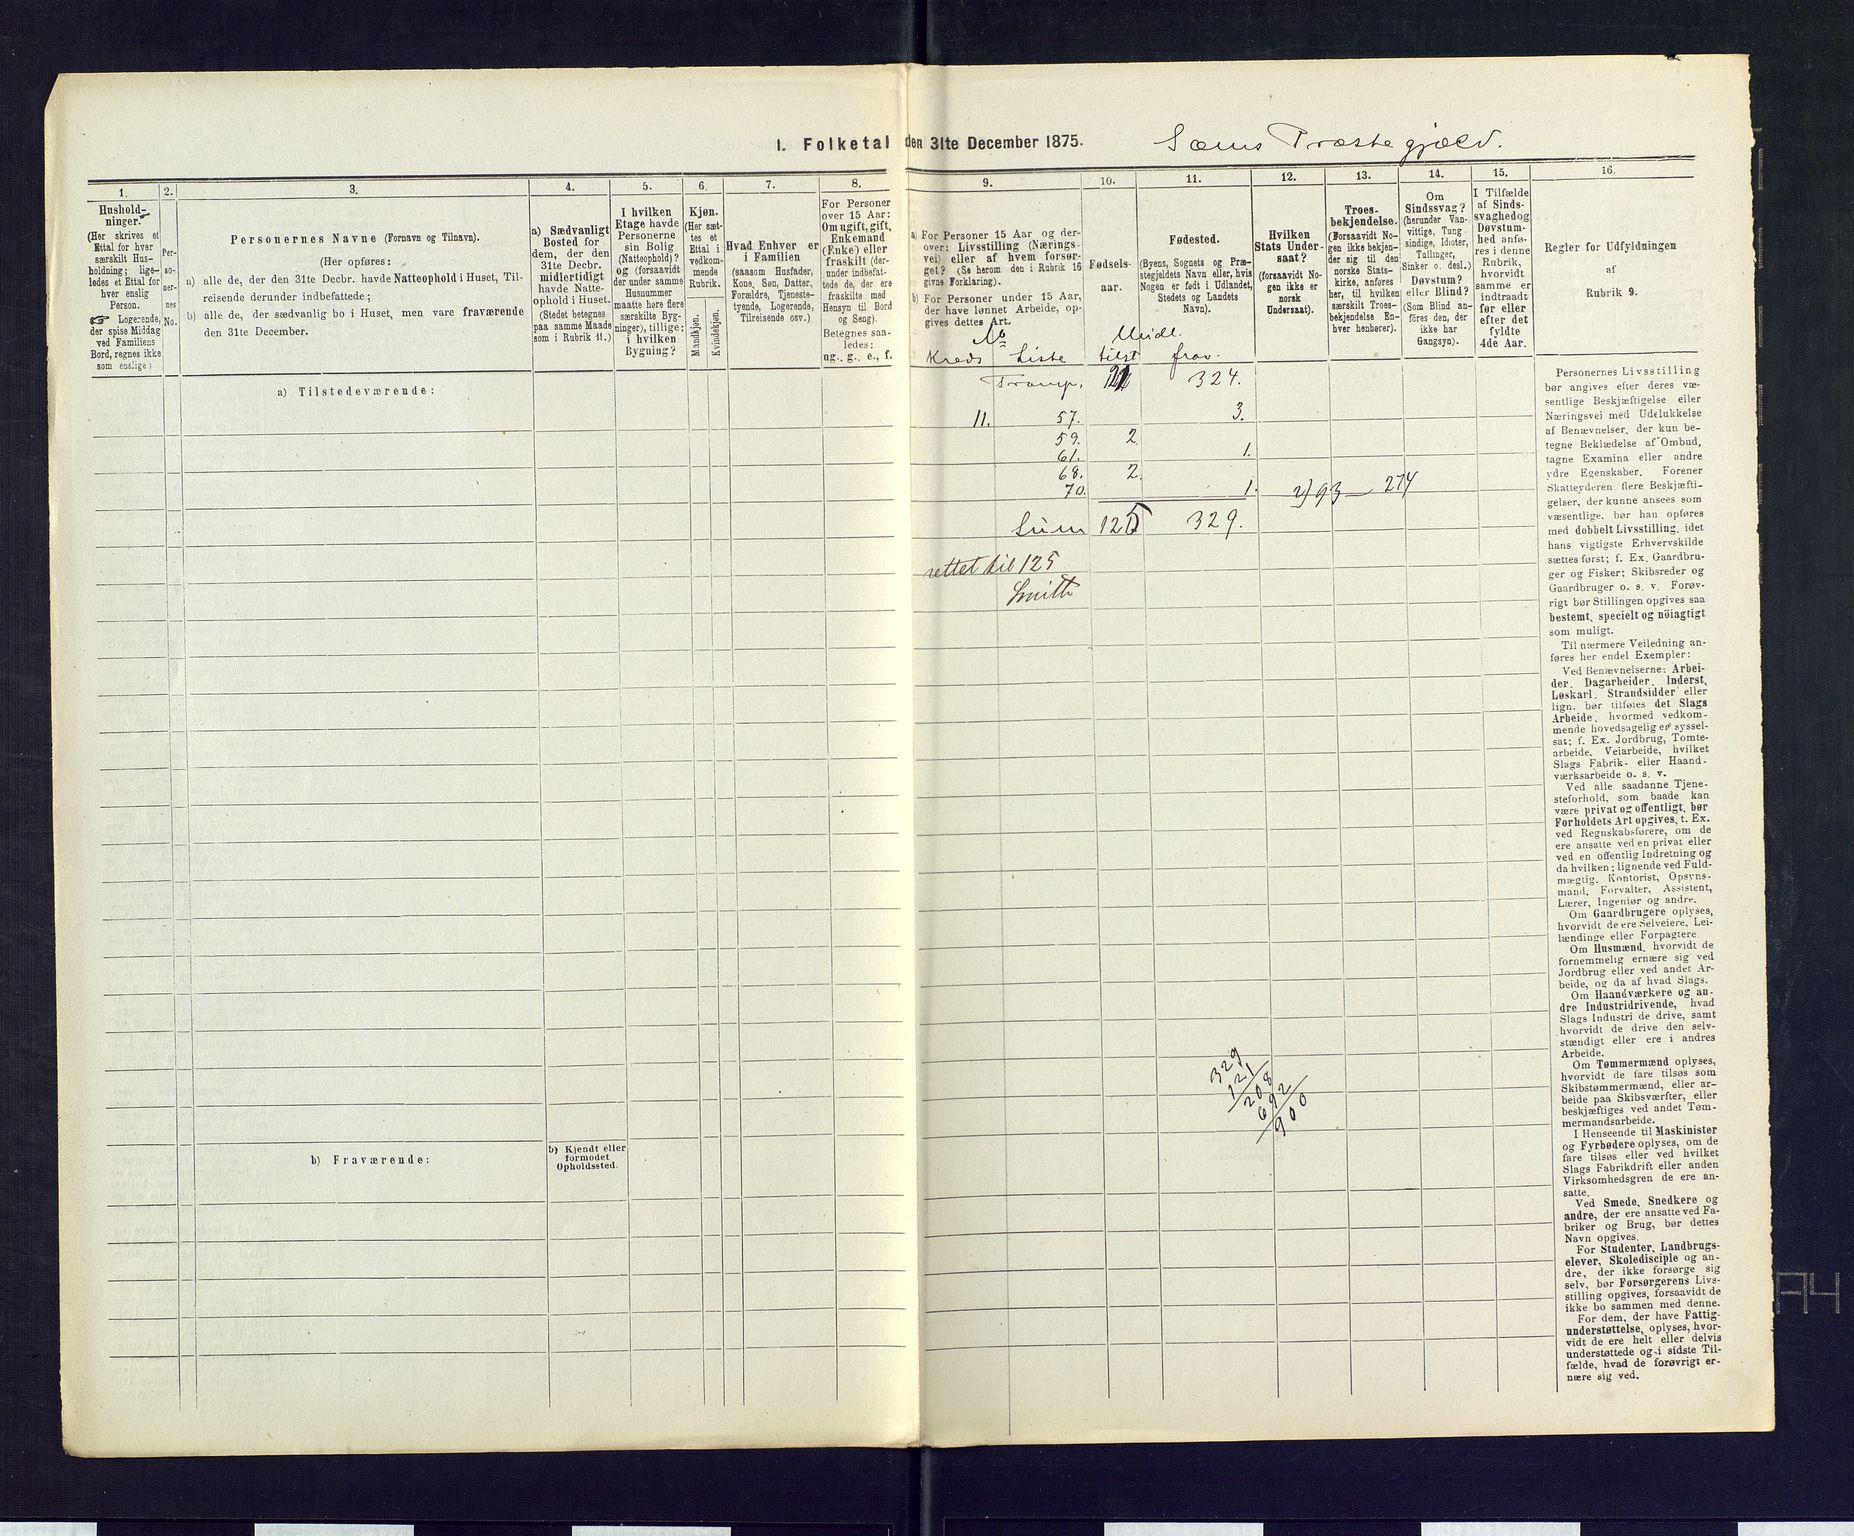 I. Folketal den 31te December 1875.
Sems Præstegjæld.
1.
2.
3.
4.
5.
6.
7.
8.
9.
10.
11.
12.
13.
14.
15.
16.
Hushold-
ninger.
(Her skrives et
Ettal for hver
særskilt Hus-
holdning; lige-
ledes et Ettal for
hver enslig
Person.
☞ Logerende,
der spise Middag
ved Familiens
Bord, regnes ikke
som enslige)
Per-
so-
ner-
nes
No.
Personernes Navne (Fornavn og Tilnavn).
(Her opføres:
a) alle de, der den 31te Decbr. havde Natteophold i Huset, Til-
reisende derunder indbefattede;
b) alle de, der sædvanlig bo i Huset, men vare fraværende
den 31te December.
a) Sædvanligt
Bosted for
dem, der den
31te Decbr.
midlertidigt
havde Natte-
ophold i Huset.
(Stedet betegnes
paa samme Maade
som i Rubrik 11.)
I hvilken
Etage havde
Personerne
sin Bolig
(Natteophold)?
og (forsaavidt
der under samme
Husnummer
maatte høre flere
særskilte Byg-
ninger), tillige:
i hvilken
Bygning?
Kjøn.
(Her sæt-
tes et
Ettal i
vedkom-
mende
Rubrik.
Mandkjøn.
Kvindekjøn.
Hvad Enhver er
i Familien
(saasom Husfader,
Kone, Søn, Datter,
Forældre, Tjeneste-
tyende, Logerende,
Tilreisende osv.)
For Personer
over 15 Aar:
Om ugift, gift,
Enkemand
(Enke) eller
fraskilt (der-
under indbefat-
tede de, der ere
fraskilte med
Hensyn til Bord
og Seng).
Betegnes saa-
ledes:
ug., g., e., f.
a) For Personer 15 Aar og der-
over: Livsstilling (Nærings-
vei) eller af hvem forsør-
get? (Se herom den i Rubrik 16
givne Forklaring).
b) For Personer under 15 Aar,
der have lønnet Arbeide, op-
gives dettes Art.
Fødsels-
aar.
Fødested.
(Byens, Sognets og Præ-
stegjeldets Navn eller, hvis
Nogen er født i Udlandet,
Stedets og Landets
Navn).
Hvilken
Stats Under-
saat?
(forsaavidt No-
gen ikke er
norsk
Undersaat).
Troes-
bekjendelse.
(Forsaavidt No-
gen ikke bekjen-
der sig til den
norske Stats-
kirke, anføres
her, til hvilken
særskilt Troes-
bekjendelse En-
hver henhører).
Om
Sindssvag?
(herunder Van-
vittige, Tung-
sindige, Idioter,
Tullinger,
Sinker o. desl.)
Døvstum?
eller Blind?
(Som Blind an-
føres den, der
ikke har
Gangsyn).
I Tilfælde
af Sinds-
svaghedog
Døvstum-
hed anfø-
res i denne
Rubrik,
hvorvidt
samme er
indtraadt
før eller
efter det
fyldte
4de Aar.
Regler for Udfyldningen
af
Rubrik 9.
No Midl.
Kreds Liste tilst frav.
a) Tilstedeværende:
Transp. 324.
11. 57. 3.
59. 2
61. 1.
68. 2.
70. 1. 2) 93 — 274
Sum 125 329.
rettet til 125
Smith
329
121
208
692
900
b) Fraværende:
b) Kjendt eller
formodet
Opholdssted.
Personernes Livsstilling
bør angives efter deres væ-
sentlige Beskjæftigelse eller
Næringsvei med Udelukkelse
af Benævnelser, der kun be-
tegne Beklædelse af Ombud,
tagne Examina eller andre
ydre Egenskaber. Forener
Skatteyderen flere Beskjæfti-
gelser, der kunne ansees som
væsentlige, bør han opføres
med dobbelt Livsstilling, idet
hans vigtigste Erhvervskilde
sættes først; f. Ex. Gaardbru-
ger og Fisker; Skibsreder og
Gaardbruger o. s. v. Forøv-
rigt bør Stillingen opgives saa
bestemt, specielt og nöiagtigt
som muligt.
Til nærmere Veiledning an-
føres her endel Exempler:
Ved Benævnelserne: Arbei-
der, Dagarbeider, Inderst,
Løskarl, Strandsidder eller
lign. bør tilføies det Slags
Arbeide, hvormed vedkom-
mende hovedsagelig er syssel-
sat; f. Ex. Jordbrug, Tomte-
arbeide, Veiarbeide, hvilket
Slags Fabrik- eller Haand-
værksarbeide o. s. v.
Ved alle saadanne Tjene-
steforhold, som baade kan
være privat og offentligt, bør
Forholdets Art opgives, t. Ex.
ved Regnskabsførere, om de
ere ansatte ved en privat eller
ved en offentlig Indretning og
da hvilken; lignende ved Fuld-
mægtig, Kontorist, Opsyns-
mand, Forvalter, Assistent,
Lærer, Ingeniør og andre.
Om Gaardbrugere oplyses,
hvorvidt de ere Selveiere, Lei-
lændinge eller Forpagtere.
Om Husmænd, hvorvidt de
fornemmelig ernære sig ved
Jordbrug eller ved andet Ar-
beide, og da af hvad Slags.
Om Haandværkere og an-
dre Industridrivende, hvad
Slags Industri de drive, samt
hvorvidt de drive den selv-
stændigt eller ere i andres
Arbeide.
Om Tømmermænd oplyses,
hvorvidt de fare tilsøs som
Skibstømmermænd, eller ar-
beide paa Skibsværfter, eller
beskjæftiges ved andet Tøm-
mermandsarbeide.
I Henseende til Maskinister
og Fyrbødere oplyses, om de
fare tilsøs eller ved hvilket
Slags Fabrikdrift eller anden
Virksomhedsgren de ere an-
satte.
Ved Smede, Snedkere og
andre, der ere ansatte ved Fa-
briker og Brug, bør dettes
Navn opgives.
For Studenter, Landbrugs-
elever, Skoledisciple og an-
dre, der ikke forsørge sig
selv, bør Forsørgerens Livs-
stilling opgives, forsaavidt de
ikke bo sammen med denne.
For dem, der have Fattig-
understøttelse, oplyses, hvor-
vidt de ere helt eller delvis
understøttede og i sidste Til-
fælde, hvad de forøvrigt er-
nære sig ved.